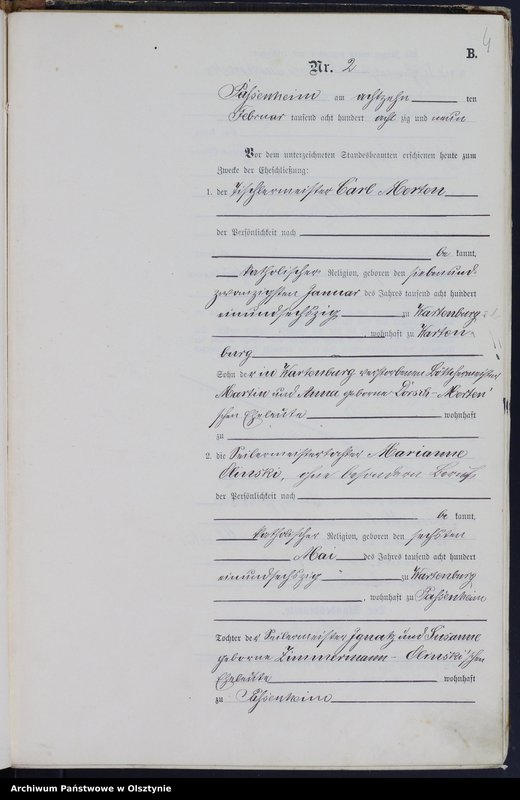 4
B.
Nr. 2
Passenheim am achtzehn ten
Februar tausend acht hundert acht zig und neun
Vor dem unterzeichneten Standesbeamten erschienen heute zum
Zwecke der Eheschließung:
1. der Tischlermeister Carl Morton
der Persönlichkeit nach
be kannt,
katholischer Religion, geboren den siebenund
zwanzigsten Januar des Jahres tausend acht hundert
einundsechszig zu Wartenburg
, wohnhaft zu Warten-
burg
Sohn der in Wartenburg verstorbenen Böttchermeister
Martin und Anna geborne Dorsch-Morton'
schen Eheleute wohnhaft
zu
2. die Seilermeistertochter Marianne
Olinski, ohne besondern Beruf
der Persönlichkeit nach
be kannt,
katholischer Religion, geboren den sechsten
Mai des Jahres tausend acht hundert
einundsechszig zu Wartenburg
, wohnhaft zu Passenheim
Tochter der Seilermeister Ignatz und Susanne
geborne Zimmermann-Olinski'schen
Eheleute wohnhaft
zu Passenheim
Archiwum Państwowe w Olsztynie